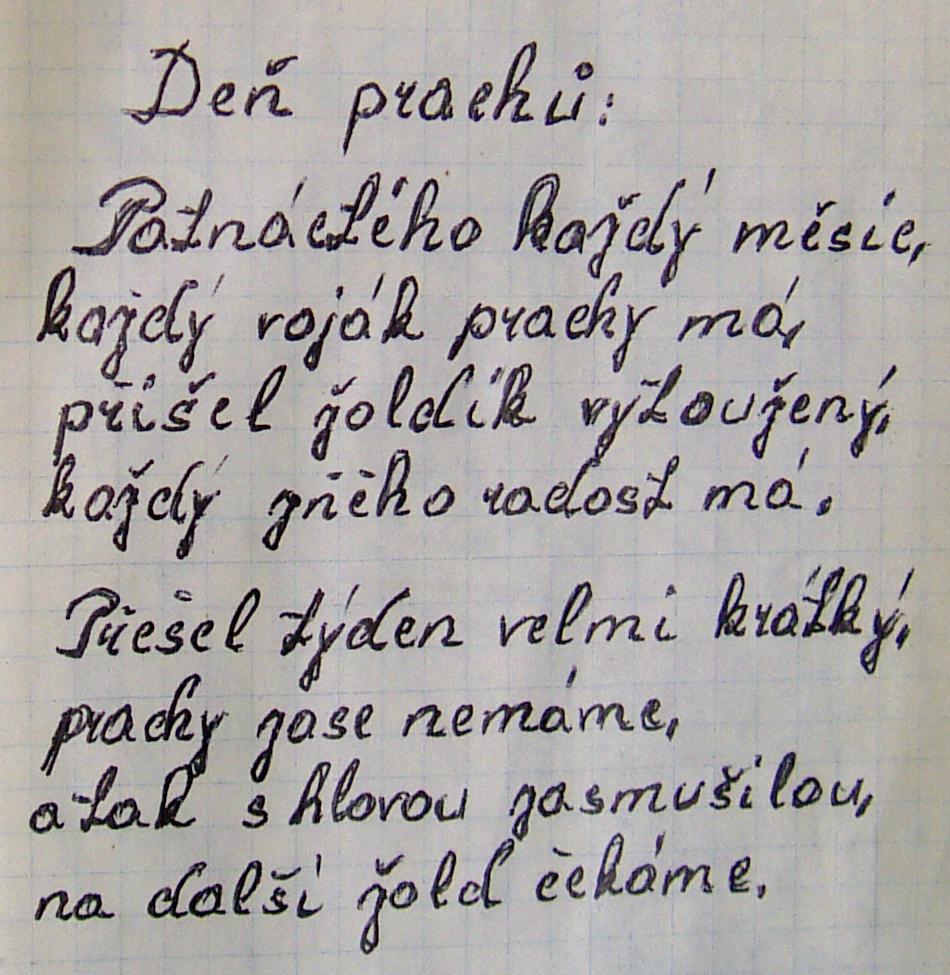 Deň prachů:
Patnáctého každý měsíc,
každý voják prachy má,
přišel žoldík vytoužený,
každý zňěho radost má.
Přešel týden velmi krátký,
prachy zase nemáme,
atak s hlavou zasmušilou,
na další žold čekáme.